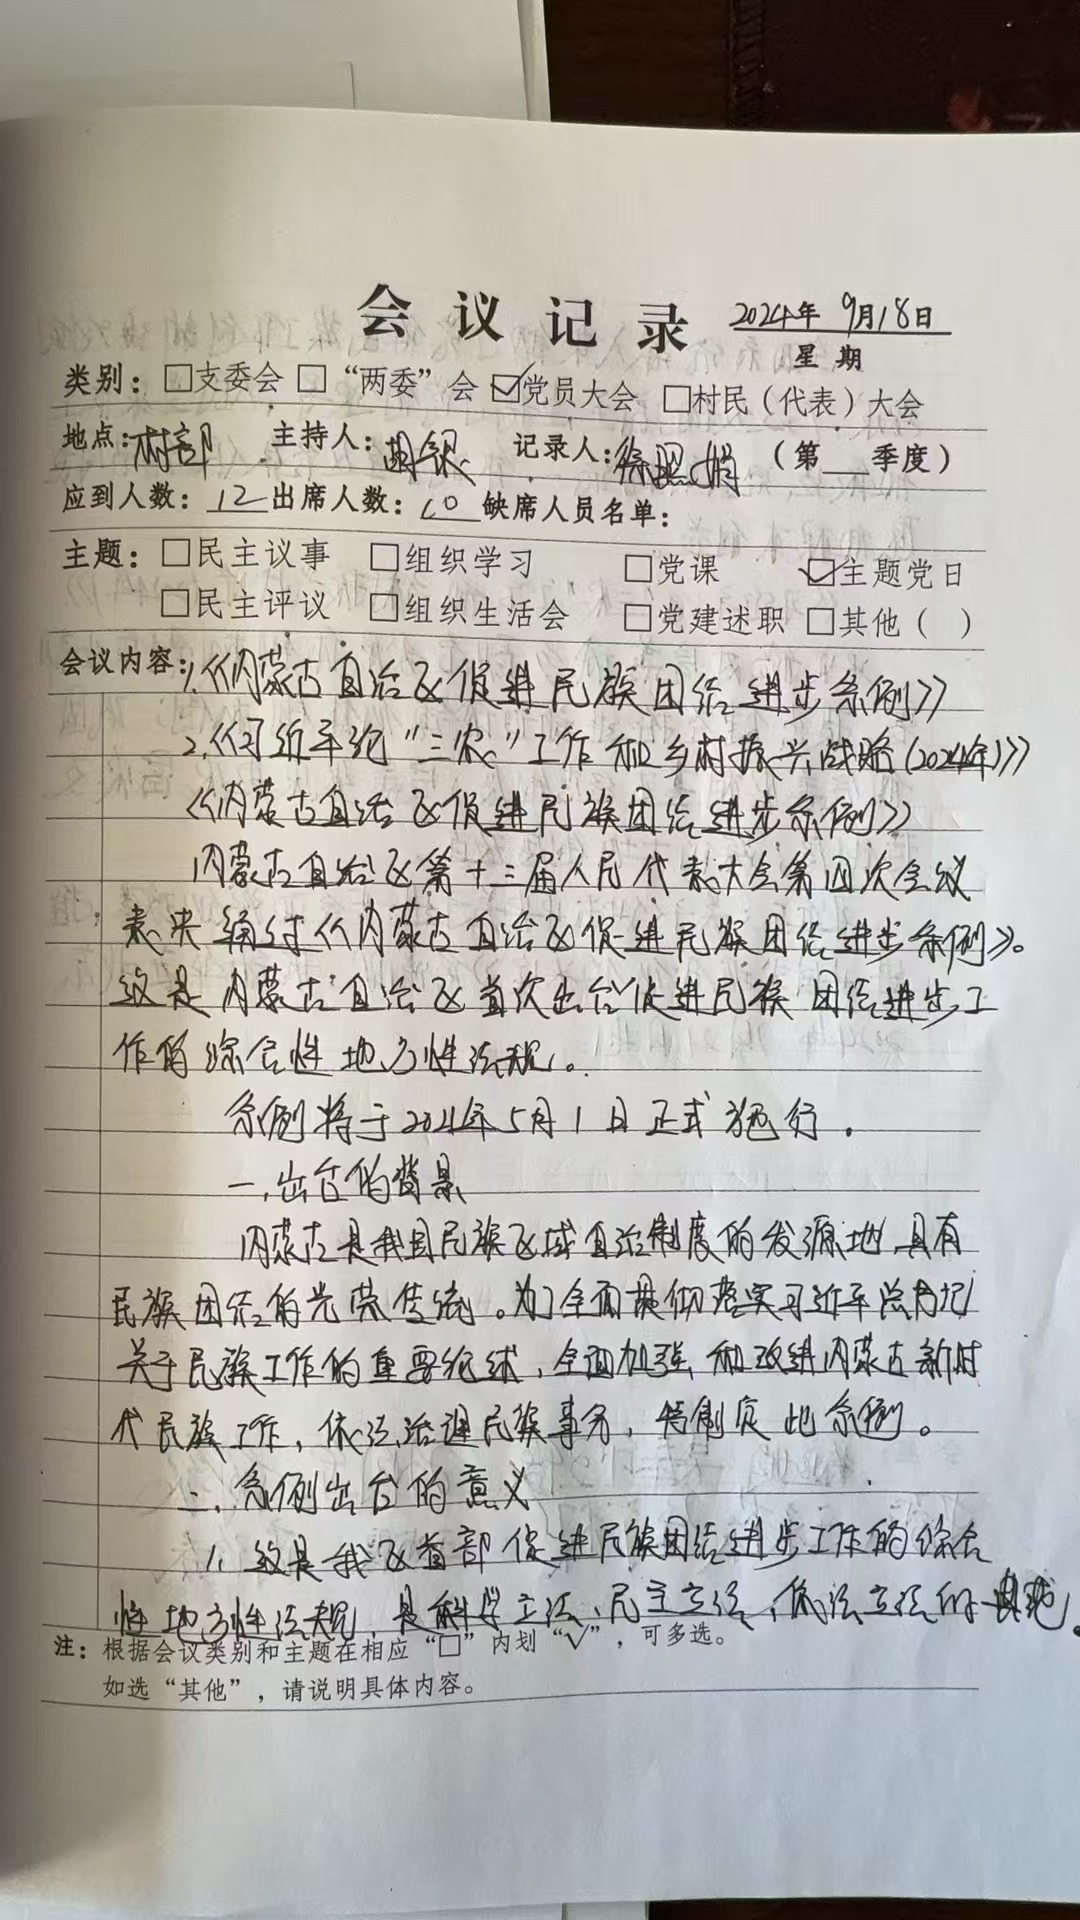 会议记录 2024年 9月18日
星期
类别：□支委会 □“两委”会 ☑党员大会 □村民（代表）大会
地点：村部 主持人： 记录人：徐照娟 （第 季度）
应到人数：12 出席人数：10 缺席人员名单：
主题：□民主议事 □组织学习 □党课 ☑主题党日
□民主评议 □组织生活会 □党建述职 □其他（ ）
会议内容：1.《内蒙古自治区促进民族团结进步条例》
2.《习近平论“三农”工作和乡村振兴战略(2024年)》
《内蒙古自治区促进民族团结进步条例》
内蒙古自治区第十三届人民代表大会第四次会议
表决通过《内蒙古自治区促进民族团结进步条例》。
这是内蒙古自治区首次出台促进民族团结进步工
作的综合性地方性法规。
条例将于2021年5月1日正式施行.
一.出台的背景
内蒙古是我国民族区域自治制度的发源地,具有
民族团结的光荣传统。为了全面贯彻落实习近平总书记
关于民族工作的重要论述,全面加强和改进内蒙古新时
代民族工作,依法治理民族事务,特制定此条例。
二.条例出台的意义
1.这是我区首部促进民族团结进步工作的综合
性地方性法规,是科学立法、民主立法、依法立法的典范.
注：根据会议类别和主题在相应“□”内划“√”，可多选。
如选“其他”，请说明具体内容。